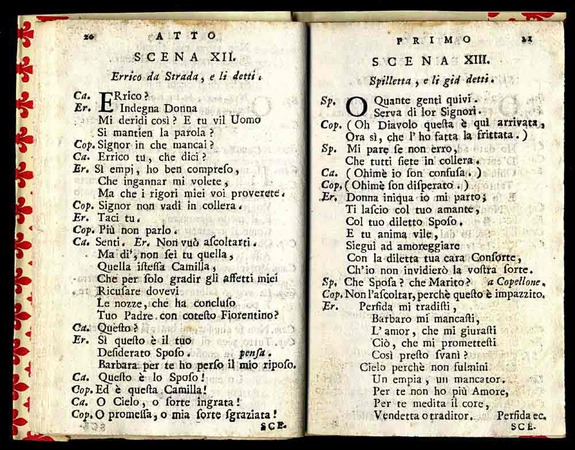 20 ATTO
SCENA XII.
Errico da Strada, e li detti.
Ca. ERrico?
Er. Indegna Donna
Mi deridi così? E tu vil Uomo
Si mantien la parola?
Cop. Signor in che mancai?
Ca. Errico tu, che dici?
Er. Sì empi, ho ben compreso,
Che ingannar mi volete,
Ma che i rigori miei voi proverete.
Cop. Signor non vadi in collera.
Er. Taci tu.
Cop. Più non parlo.
Ca. Senti. Er. Non vuò ascoltarti.
Ma di', non sei tu quella,
Quella istessa Camilla,
Che per solo gradir gli affetti miei
Ricusare dovevi
Le nozze, che ha concluso
Tuo Padre con cotesto Fiorentino?
Ca. Questo?
Er. Sì questo è il tuo
Desiderato Sposo. pensa.
Barbara per te ho perso il mio riposo.
Ca. Questo è lo Sposo!
Cop. Ed è questa Camilla!
Ca. O Cielo, o sorte ingrata!
Cop. O promessa, o mia sorte sgraziata!
SCE.
PRIMO 21
SCENA XIII.
Spilletta, e li già detti.
Sp. O Quante genti quivi.
Serva di lor Signori.
Cop. (Oh Diavolo questa è quì arrivata,
Ora sì, che l'ho fatta la frittata.)
Sp. Mi pare se non erro,
Che tutti siete in collera.
Ca. (Ohimè io son confusa.)
Cop. (Ohimè son disperato.)
Er. Donna iniqua io mi parto;
Ti lascio col tuo amante,
Col tuo diletto Sposo.
E tu anima vile,
Siegui ad amoreggiare
Con la diletta tua cara Consorte,
Ch'io non invidierò la vostra sorte.
Sp. Che Sposa? che Marito? a Copellone.
Cop. Non l'ascoltar, perchè questo è impazzito.
Er. Perfida mi tradisti,
Barbaro mi mancasti,
L'amor, che mi giurasti
Ciò, che mi promettesti
Così presto svanì?
Cielo perchè non fulmini
Un empia, un mancator.
Per te non ho più Amore,
Per te medita il core,
Vendetta o traditor. Perfida ec.
SCE.